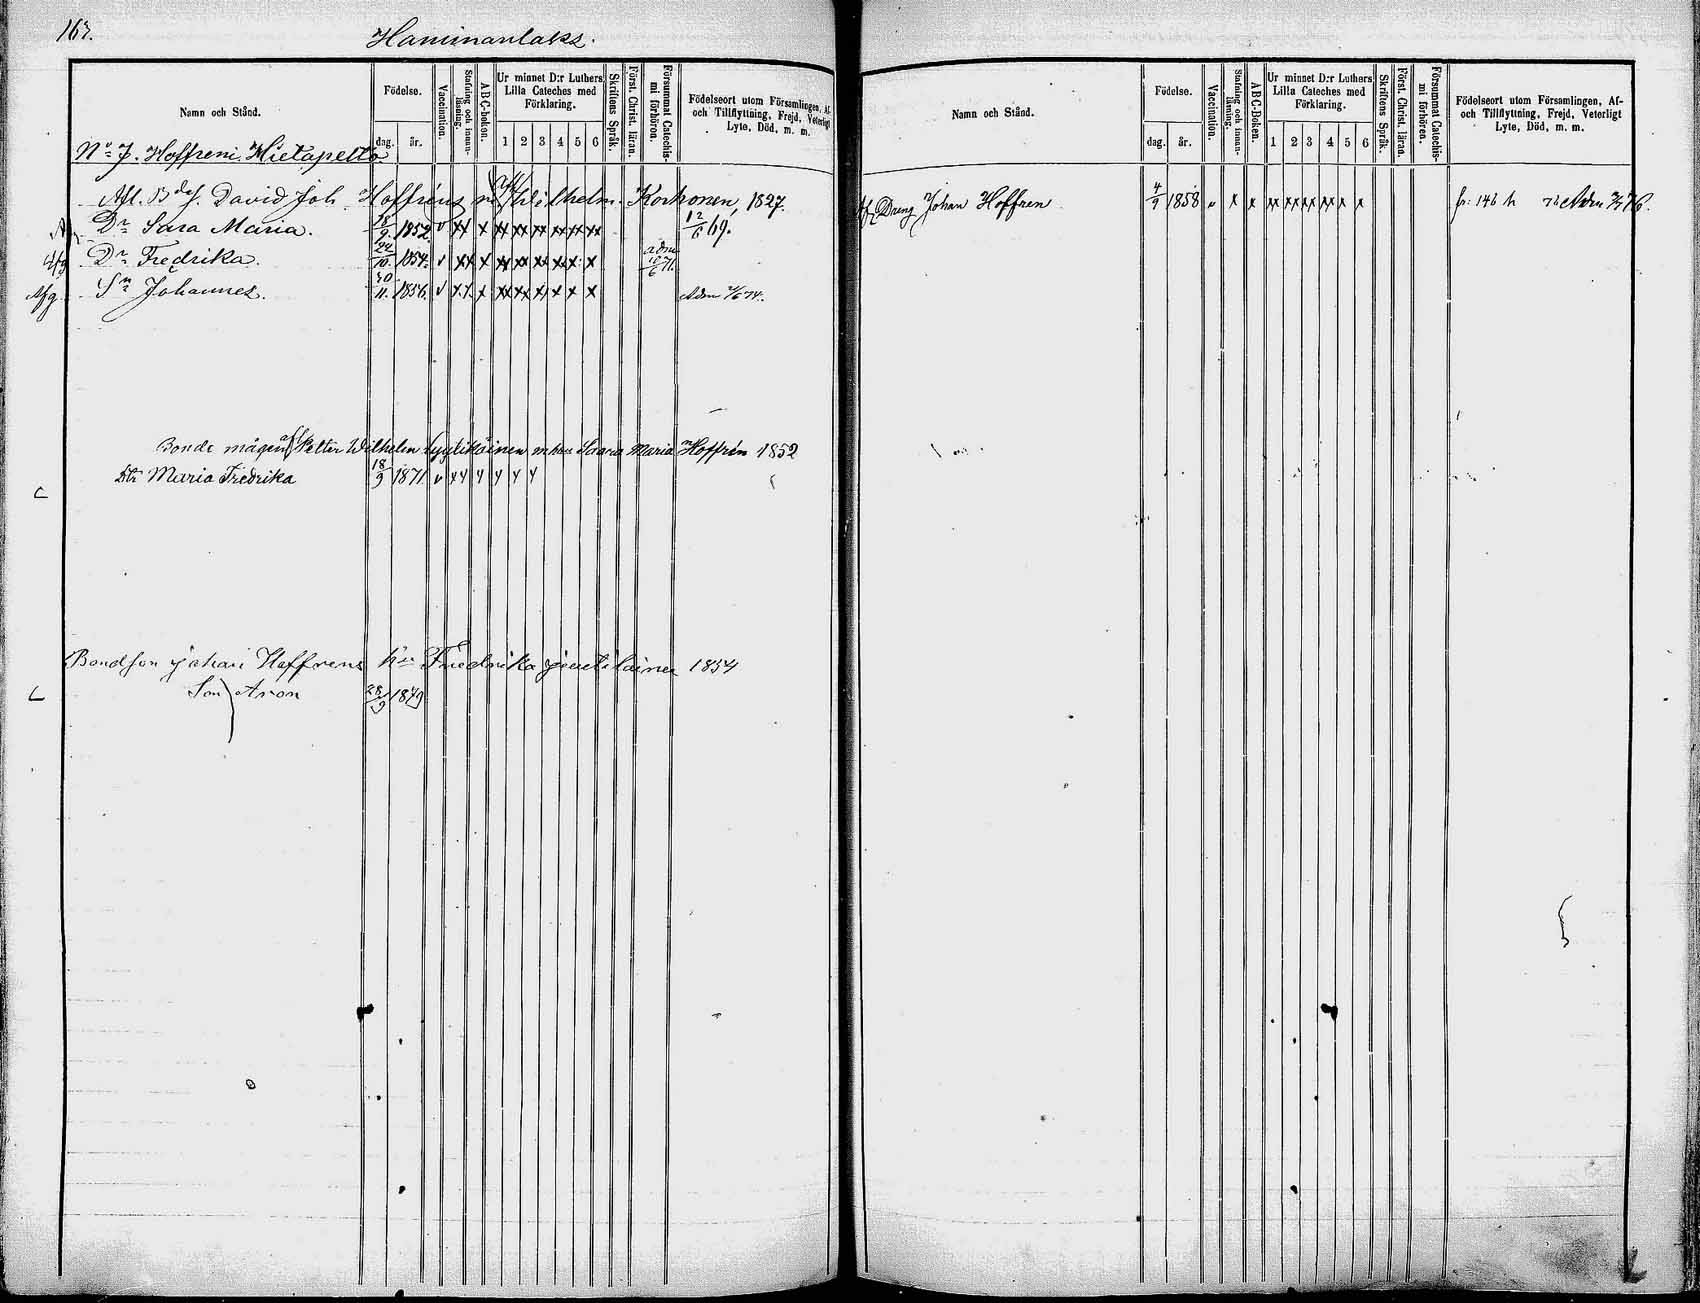 167.
Haminanlaks.
Namn och Stånd.
Födelse.
dag.
år.
Vaccination.
Stafning och innan-läsning.
ABC-Boken.
Ur minnet D:r Luthers
Lilla Cateches med
Förklaring.
1 2 3 4 5 6
Skriftens Språk.
Först. Christ. läran.
Försummat Catechis-
mi förhören.
Födelseort utom Församlingen, Af-
och Tillflyttning, Frejd, Veterligt
Lyte, Död, m. m.
No 7. Hoffreni Hietapelto
Afl. David Joh. Hoffréns Wilhelm. Korhonen, 1827.
Dr Sara Maria. 28/9 1852. v xx x xx xx xx xx xx xx 12/6 69.
Afg Dr Fredrika. 24/10 1854. v xx x xx xx xx xx x x adm 71.
Afg Sn Johannes. 30/11. 1856. v x.x. x xx xx x x x x Adm 74.
Bonde mågen Petter Wilhelm Lyytikäinen m hru Saara Maria Hoffrén 1852
Dtr Maria Fredrika 18/9 1871. v
Bondson Johan Hoffrens hu Fredrika 1854
Son Aron 28/9 1879
Namn och Stånd.
Födelse.
dag.
år.
Vaccination.
Stafning och innan-läsning.
ABC-Boken.
Ur minnet D:r Luthers
Lilla Cateches med
Förklaring.
1 2 3 4 5 6
Skriftens Språk.
Först. Christ. läran.
Försummat Catechis-
mi förhören.
Födelseort utom Församlingen, Af-
och Tillflyttning, Frejd, Veterligt
Lyte, Död, m. m.
Dreng Johan Hoffren 4/9 1858 v x x xx xx xx xx x x fr. 146 Adm 76.